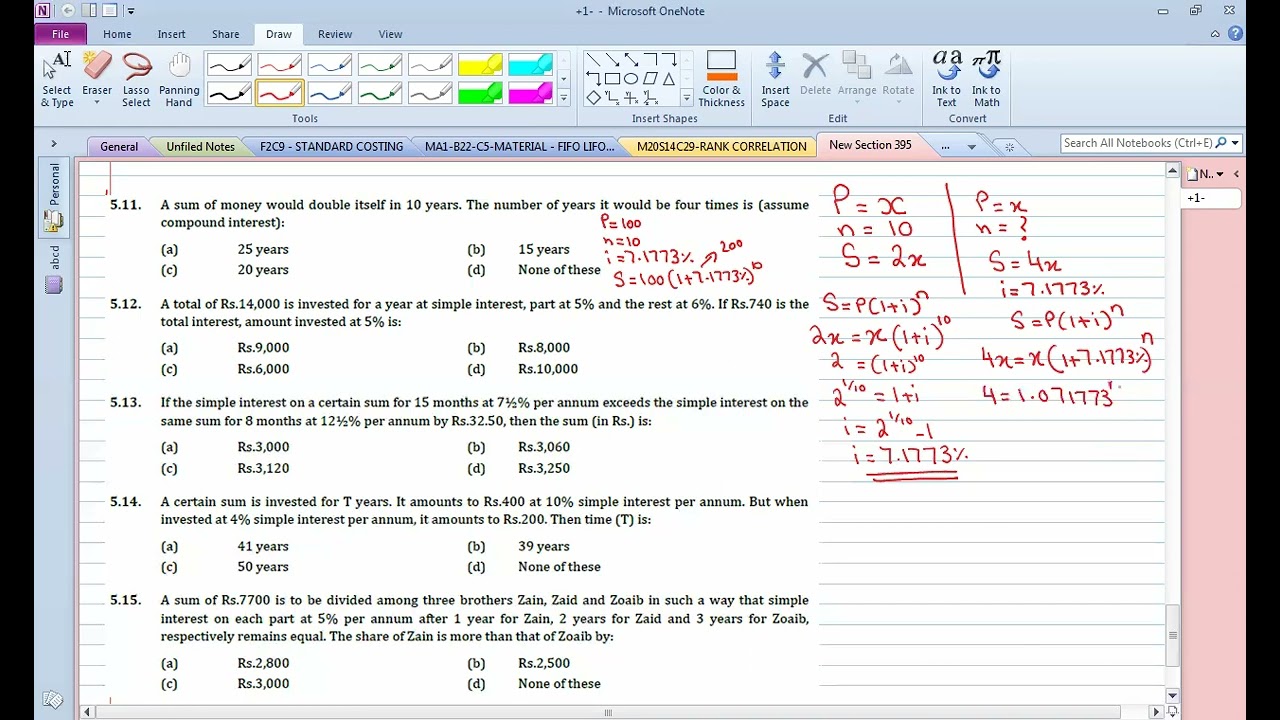 +1- - Microsoft OneNote
File Home Insert Share Draw Review View
Select & Type
Eraser
Lasso Select
Panning Hand
Color & Thickness
Insert Space
Delete
Arrange
Rotate
Ink to Text
Ink to Math
Tools
Insert Shapes
Edit
Convert
General
Unfiled Notes
F2C9 - STANDARD COSTING
MA1-B22-C5-MATERIAL - FIFO LIFO...
M20S14C29-RANK CORRELATION
New Section 395
...
Search All Notebooks (Ctrl+E)
N..
+1-
Personal
abcd
5.11. A sum of money would double itself in 10 years. The number of years it would be four times is (assume
compound interest):
(a) 25 years (b) 15 years
(c) 20 years (d) None of these
P=100
n=10
i=7.1773%
200
S=100(1+7.1773%)^10
5.12. A total of Rs.14,000 is invested for a year at simple interest, part at 5% and the rest at 6%. If Rs.740 is the
total interest, amount invested at 5% is:
(a) Rs.9,000 (b) Rs.8,000
(c) Rs.6,000 (d) Rs.10,000
5.13. If the simple interest on a certain sum for 15 months at 7½% per annum exceeds the simple interest on the
same sum for 8 months at 12½% per annum by Rs.32.50, then the sum (in Rs.) is:
(a) Rs.3,000 (b) Rs.3,060
(c) Rs.3,120 (d) Rs.3,250
5.14. A certain sum is invested for T years. It amounts to Rs.400 at 10% simple interest per annum. But when
invested at 4% simple interest per annum, it amounts to Rs.200. Then time (T) is:
(a) 41 years (b) 39 years
(c) 50 years (d) None of these
5.15. A sum of Rs.7700 is to be divided among three brothers Zain, Zaid and Zoaib in such a way that simple
interest on each part at 5% per annum after 1 year for Zain, 2 years for Zaid and 3 years for Zoaib,
respectively remains equal. The share of Zain is more than that of Zoaib by:
(a) Rs.2,800 (b) Rs.2,500
(c) Rs.3,000 (d) None of these
P=x
n=10
S=2x
S=P(1+i)^n
2x=x(1+i)^10
2=(1+i)^10
2^1/10=1+i
i=2^1/10-1
i=7.1773%
P=x
n=?
S=4x
i=7.1773%
S=P(1+i)^n
4x=x(1+7.1773%)^n
4=1.071773